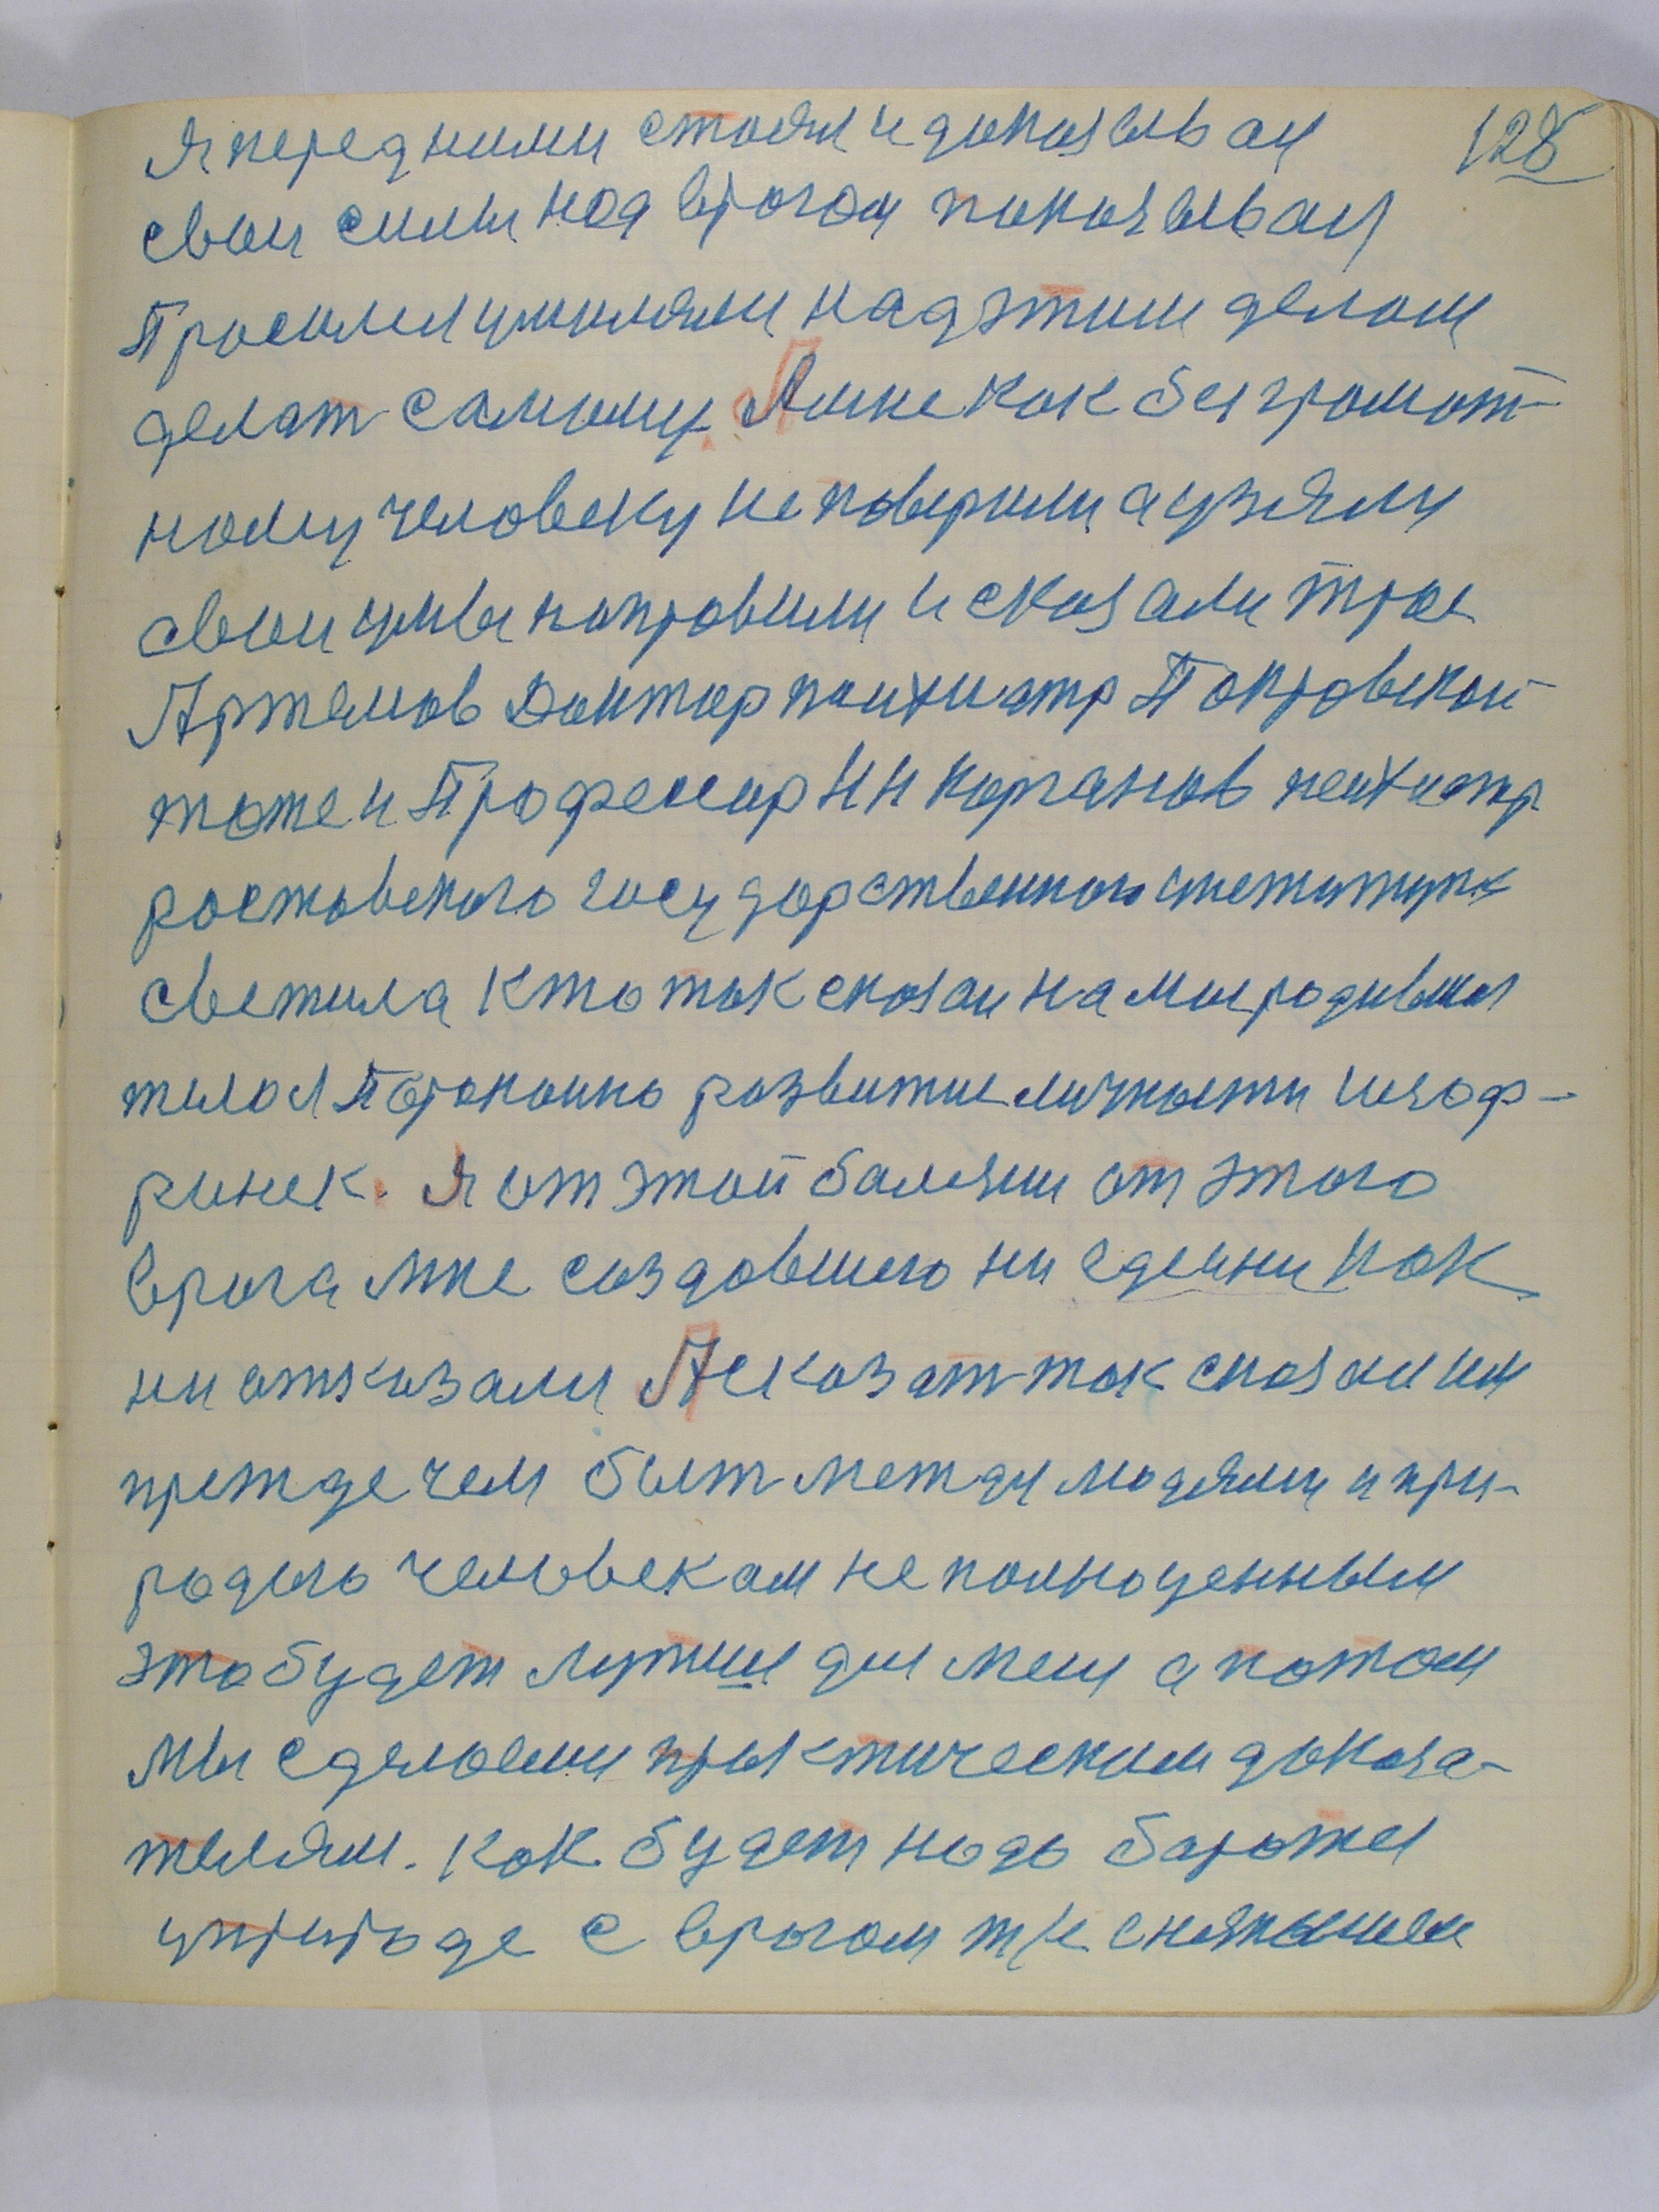 128
я перед ними стоял и доказывал
свои силы над врагом показывал
Просил и умилял над этим делом
делат самому. А мне как безграмот-
ному человеку не поверили а узяли
свои умы направили и сказали трое
Артемов Доктор психиатр Покровской
тоже и Професор Н Н Корганов психиатр
ростовского государственного
светила кто так сказал на мое родивше
тело Параноино развитие личности шизоф-
риник. Я от этой балезни от этого
врага мне создавшего ни едены как
ни отказали А сказат так сказал им
прежде чем быт между людями и при-
родою человекам не полноценным
это будет лутше для мени а потом
мы сделаеми практическим доказа-
телям. как будет надо баротся
у природе с врагом т/е с